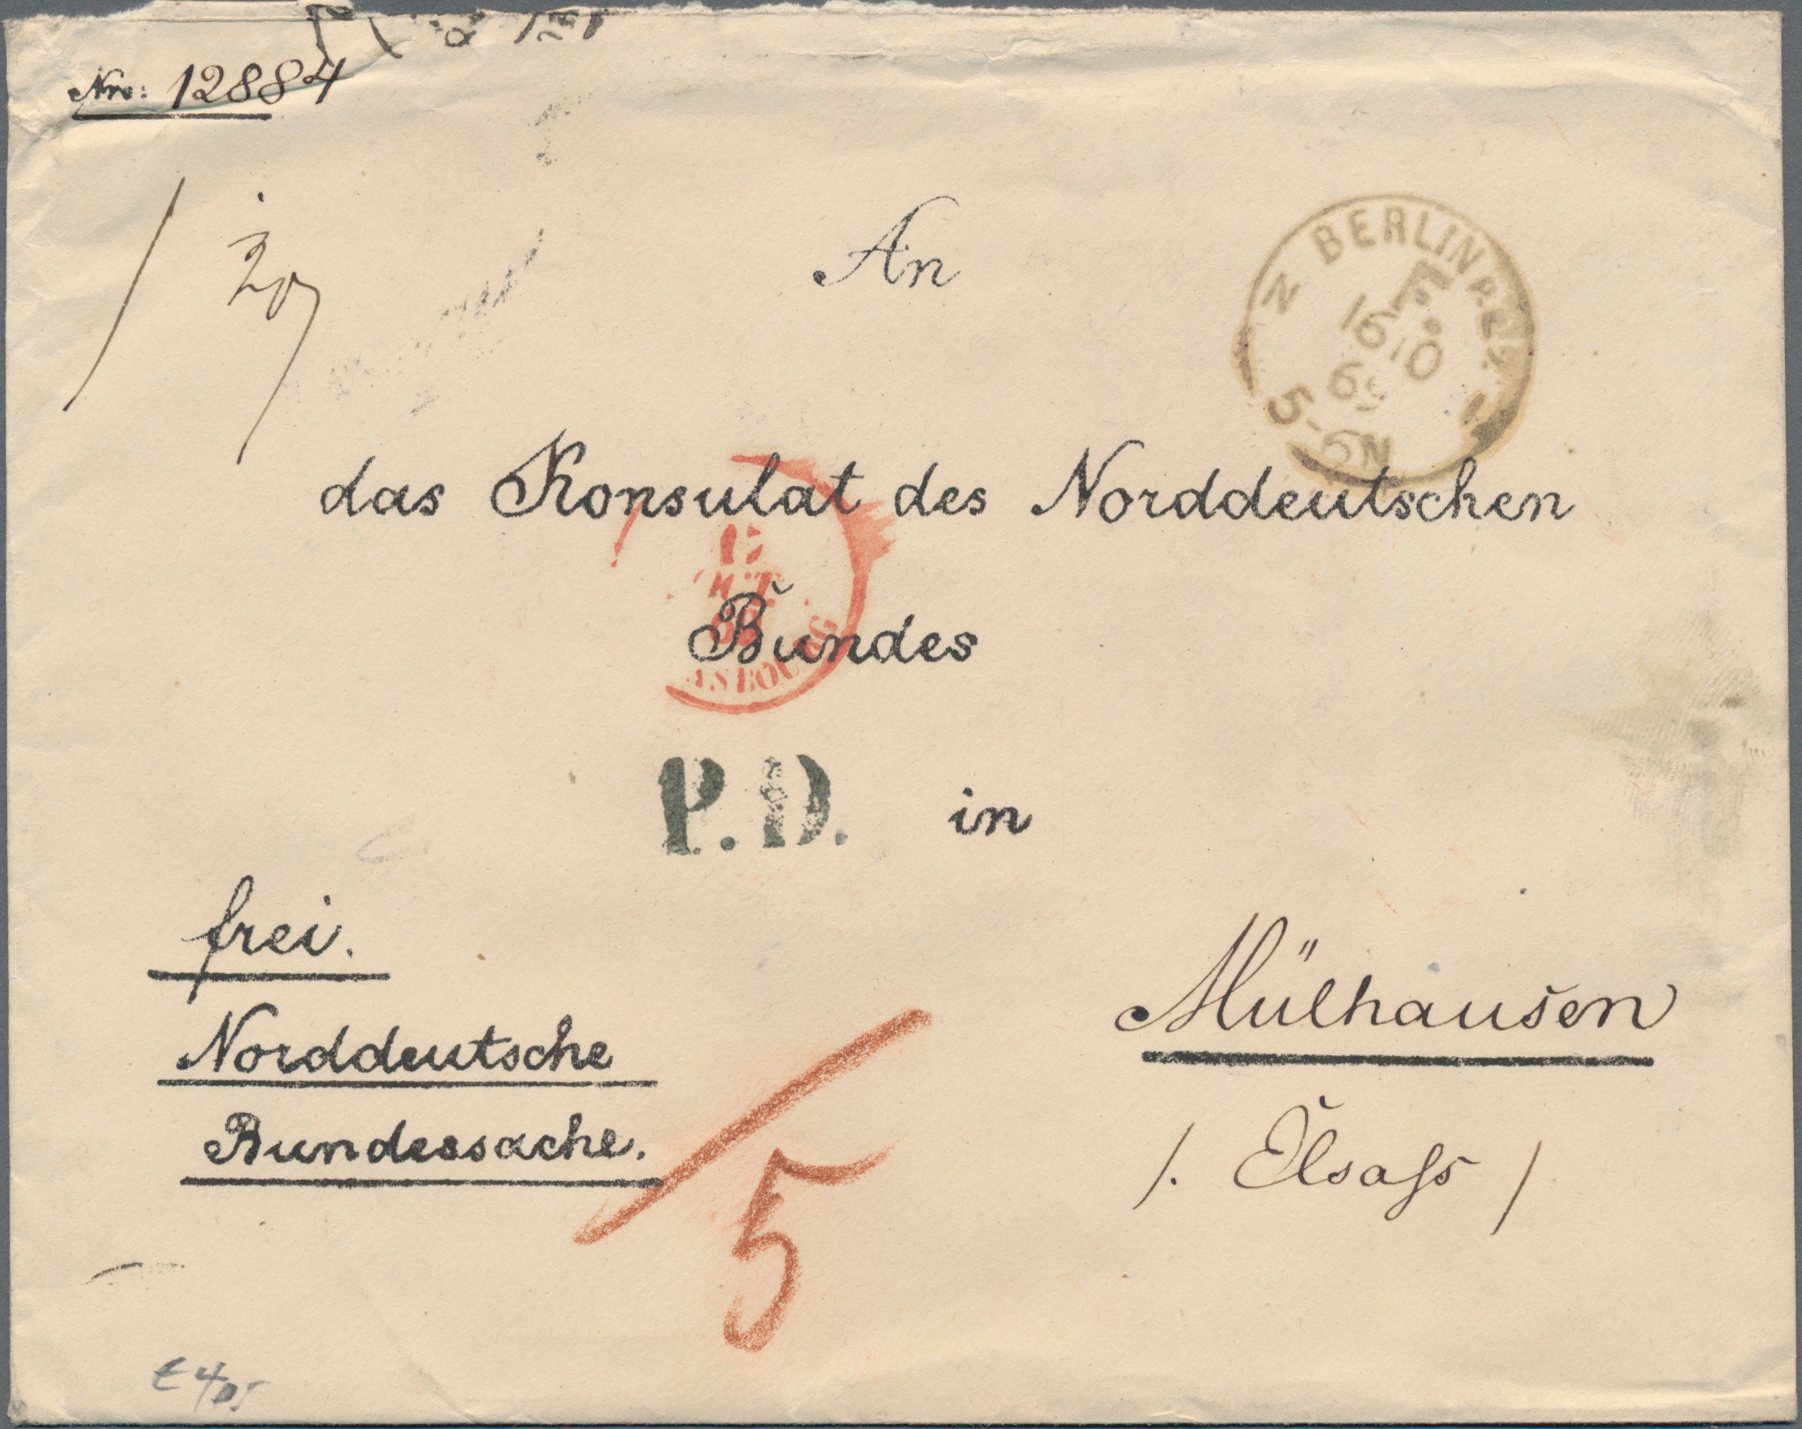 Nro: 12884
An
N BERLIN P.E.
16 10
69
5-6N
das Konsulat des Norddeutschen
OCT
Bundes
ASBOURG
P.D. in
frei.
Norddeutsche
Bundessache.
Mülhausen
/. Elsaſs /
5